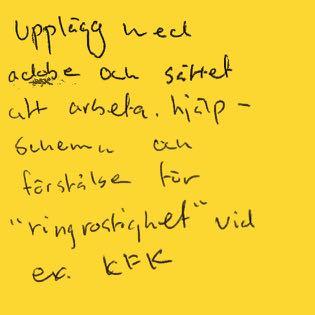 upplägg med
adobe och sättet
att arbeta. hjälp-
schema och
förståelse för
"ringrostighet" vid
ex. KFK